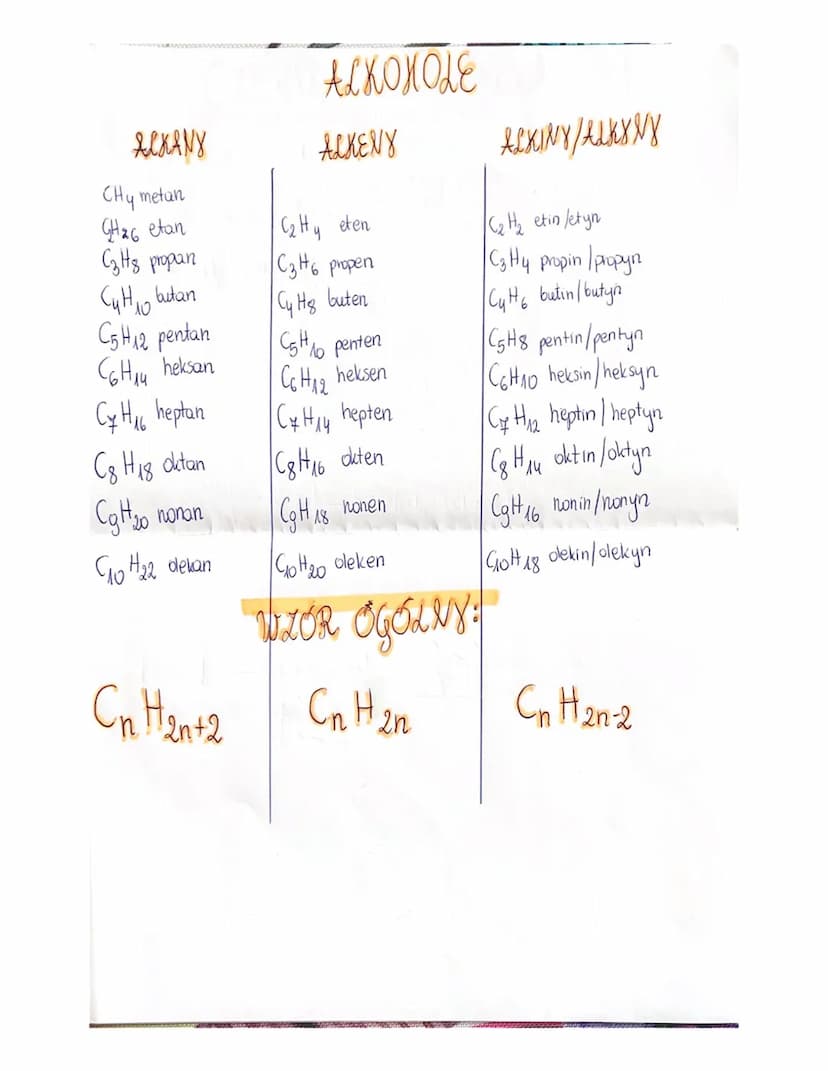 ALKOHOLE
ALKANY ALKENY ALKINY/ALKYNY
CH4 metan
C2H26 etan C2H4 eten C2H2 etin/etyn
C3H8 propan C3H6 propen C3H4 propin/propyn
C4H10 butan C4H8 buten C4H6 butin/butyn
C5H12 pentan C5H10 penten C5H8 pentin/pentyn
C6H14 heksan C6H12 heksen C6H10 heksin/heksyn
C7H16 heptan C7H14 hepten C7H12 heptin/heptyn
C8H18 oktan C8H16 okten C8H14 oktin/oktyn
C9H20 nonan C9H18 nonen C9H16 nonin/nonyn
C10H22 dekan C10H20 deken C10H18 dekin/dekyn
WZÓR OGÓLNY:
CnH2n+2 CnH2n CnH2n-2